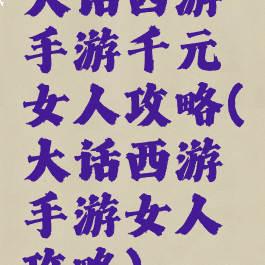 大话西游
手游千元
女人攻略(
大话西游
手游女人
攻略)